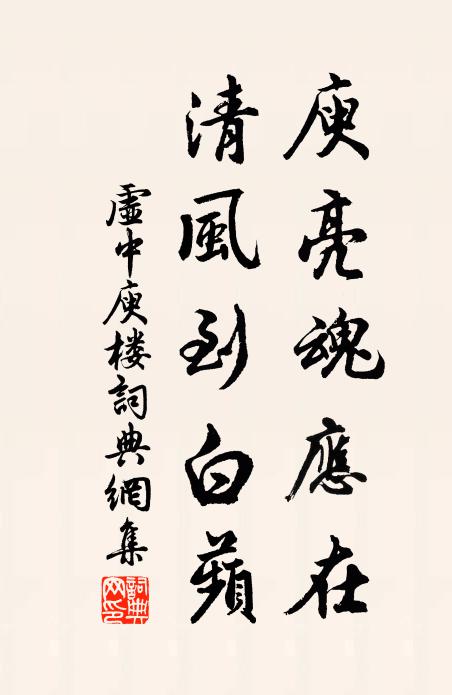 庾亮魂應在
清風到白蘋
虛中庾楼詞典網集
詞典网印